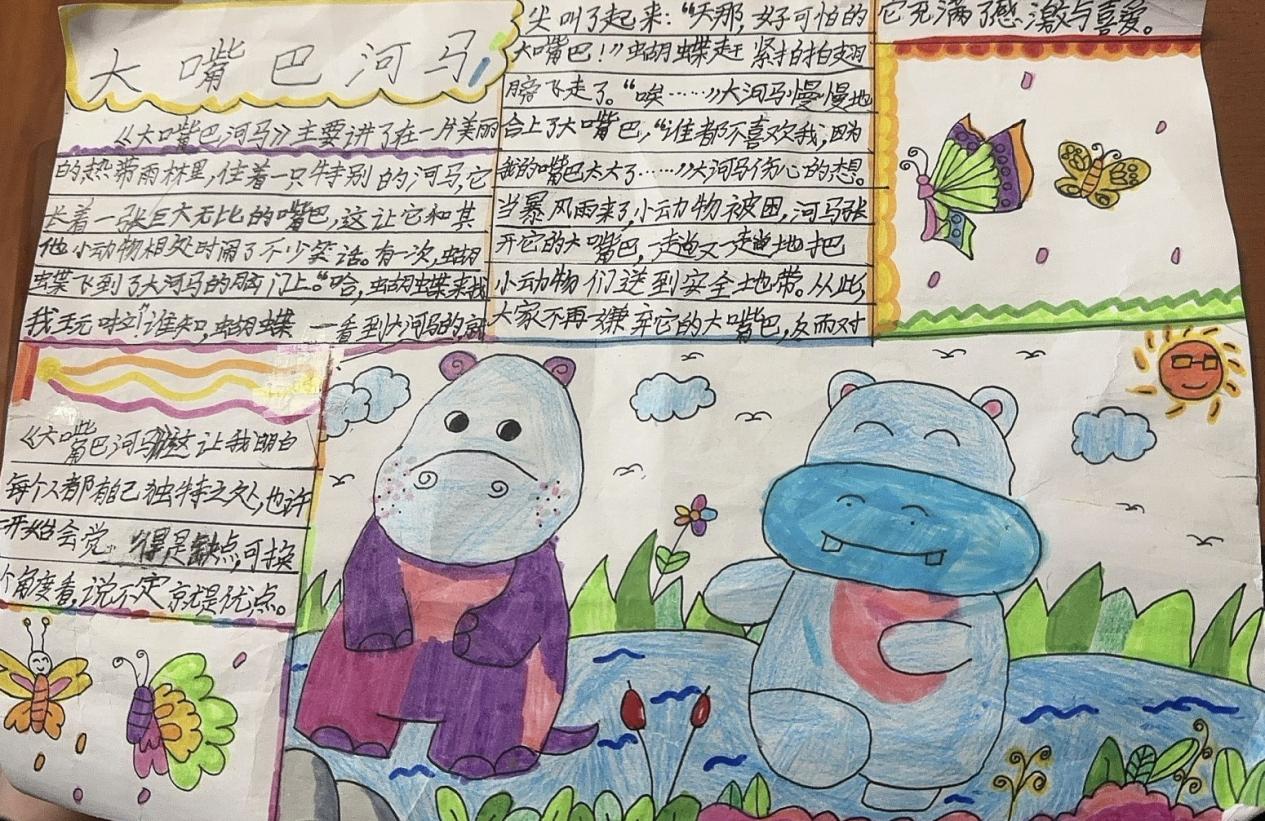 大嘴巴河马
《大嘴巴河马》主要讲了在一片美丽
的热带雨林里,住着一只特别的河马,它
长着一张巨大无比的嘴巴,这让它和其
他小动物相处时闹了不少笑话。有一次,蝴
蝶飞到了大河马的脑门上。“哈,蝴蝶来找
我玩啦!”谁知,蝴蝶一看到大河马的就
尖叫了起来:“天那,好可怕的
大嘴巴!”蝴蝶赶紧拍拍翅
膀飞走了。“唉……”大河马慢慢地
合上了大嘴巴,“谁都不喜欢我,因为
我的嘴巴太大了……”大河马伤心的想。
当暴风雨来了,小动物被困,河马张
开它的大嘴巴,一趟又一趟地把
小动物们送到安全地带。从此,
大家不再嫌弃它的大嘴巴,反而对
它充满了感激与喜爱。
《大嘴巴河马》这让我明白
每个人都有自己独特之处,也许
开始会觉得是缺点,可换
个角度看,说不定就是优点。